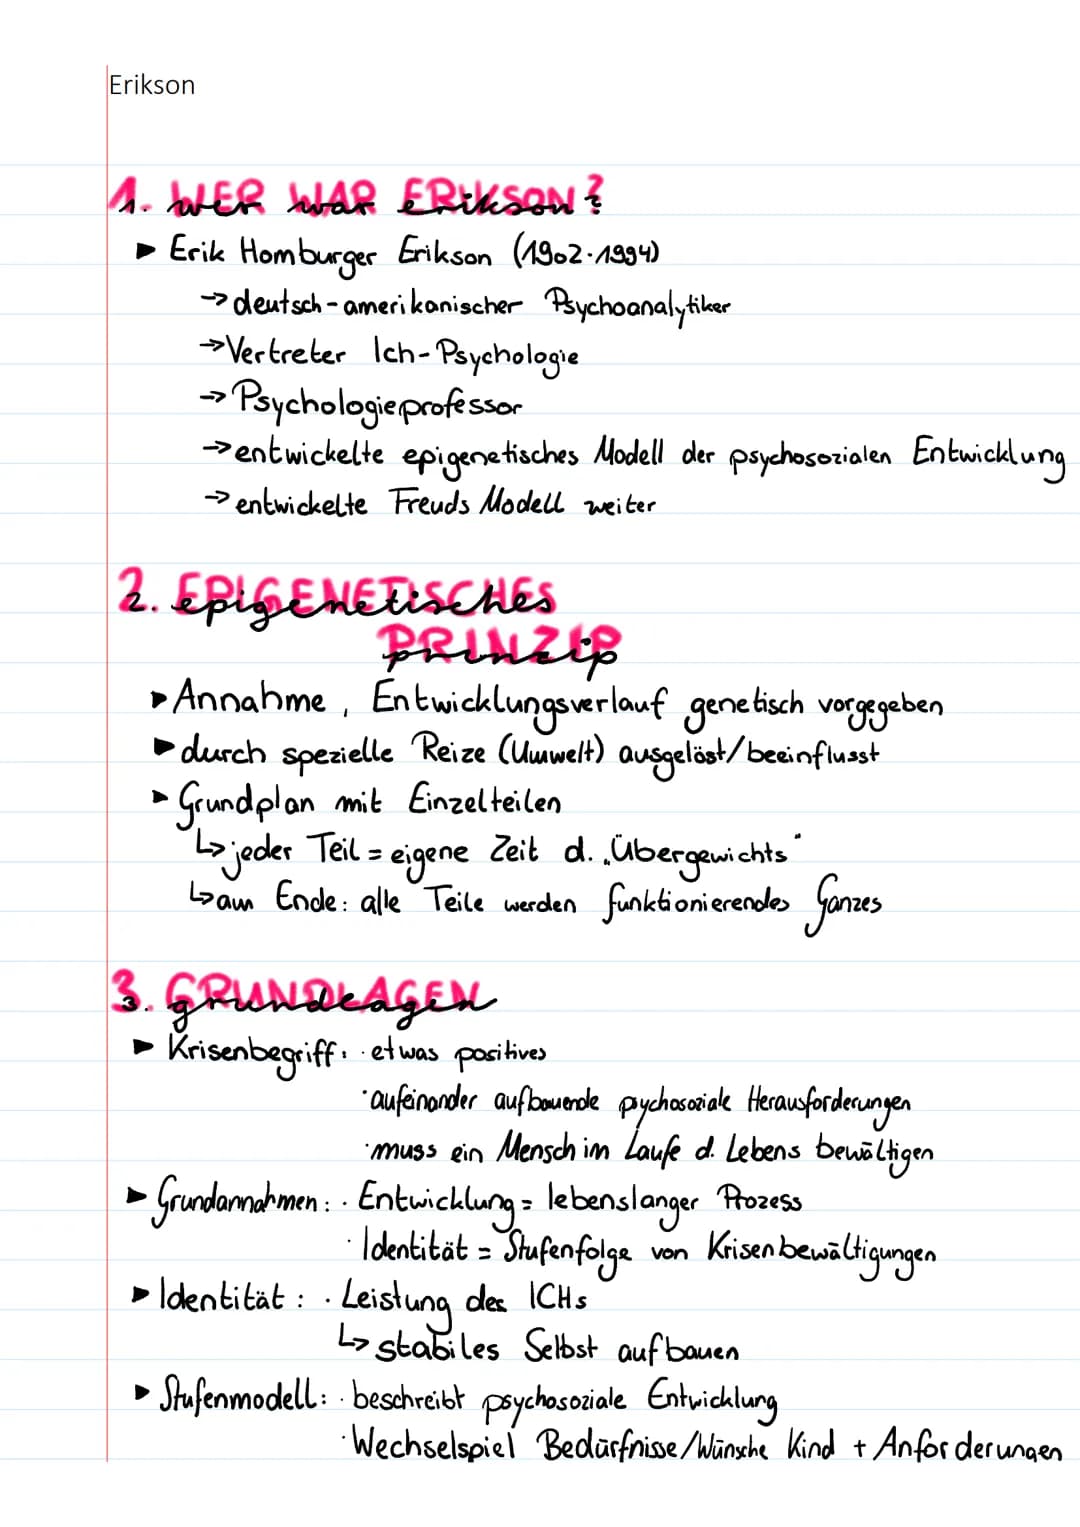 Erikson
1. WER WAR ERIKSON?
▸ Erik Homburger Erikson (1902-1994)
→ deutsch-amerikanischer Psychoanalytiker
→ Vertreter Ich-Psychologie
→ Psychologieprofessor
→ entwickelte epigenetisches Modell der psychosozialen Entwicklung
→ entwickelte Freuds Modell weiter
2. EPIGENETISCHES
PRINZIP
▸ Annahme, Entwicklungsverlauf genetisch vorgegeben
▸ durch spezielle Reize (Umwelt) ausgelöst/beeinflusst
▸ Grundplan mit Einzelteilen
↳ jeder Teil = eigene Zeit d. „Übergewichts"
↳ am Ende: alle Teile werden funktionierendes Ganzes
3. GRUNDLAGEN
▸ Krisenbegriff: · etwas positives
· aufeinander aufbauende psychosoziale Herausforderungen
· muss ein Mensch im Laufe d. Lebens bewältigen
▸ Grundannahmen: · Entwicklung = lebenslanger Prozess
· Identität = Stufenfolge von Krisenbewältigungen
▸ Identität: · Leistung des ICHs
↳ stabiles Selbst aufbauen
▸ Stufenmodell: · beschreibt psychosoziale Entwicklung
· Wechselspiel Bedürfnisse/Wünsche Kind + Anforderungen